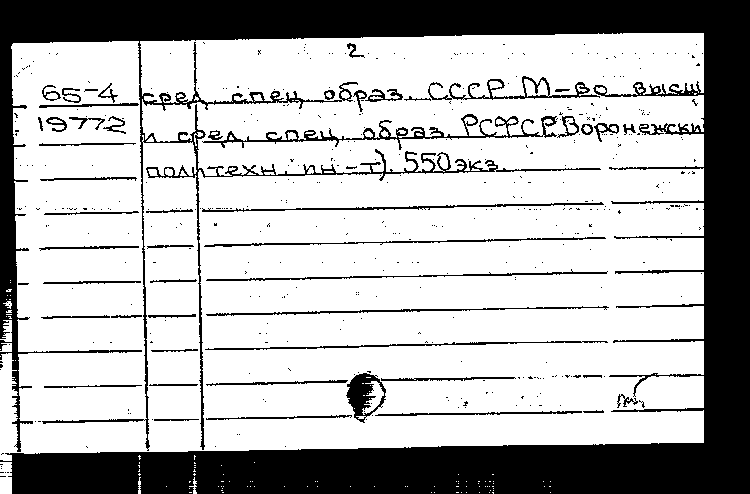 2
65-4 сред. спец. образ. СССР М-во высш
19772 и сред. спец. образ. РСФСР Воронежски
политехн. ин-т). 550 экз.